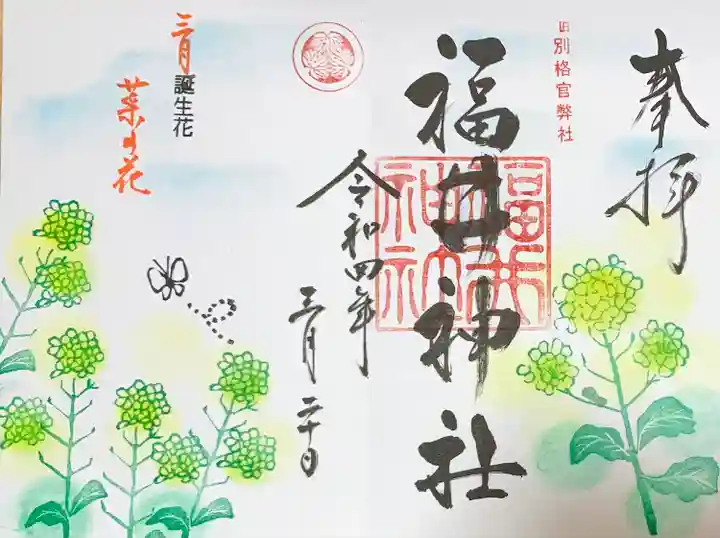 奉拝
旧別格官弊社
福井神社
福井神社
令和四年
三月二十日
三月誕生花
菜の花